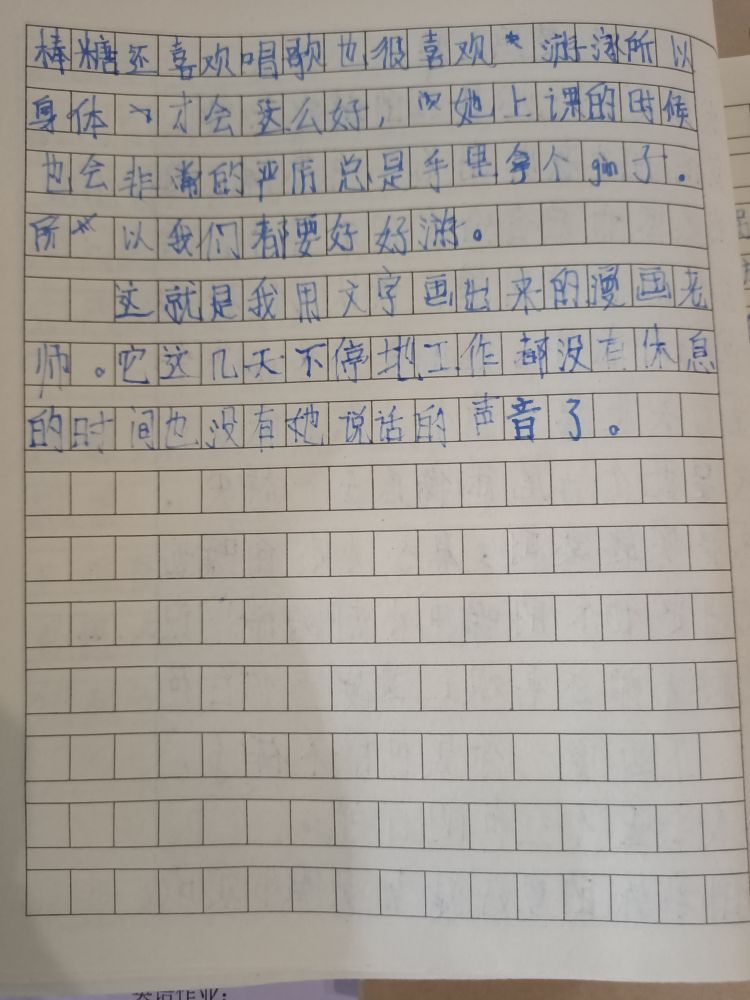 棒糖还喜欢唱歌也很喜欢游泳所以
身体才会这么好，她上课的时候
也会非常的严厉总是手里拿个gun子。
所以我们都要好好游。
这就是我用文字画出来的漫画老
师。它这几天不停地工作都没有休息
的时间也没有她说话的声音了。
英语作业：